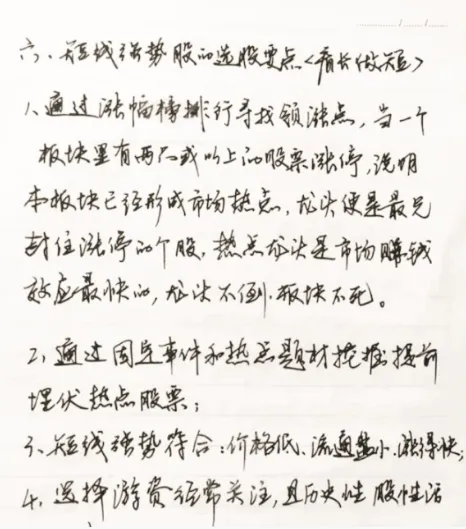 六、短线强势股的选股要点<看长做短>
1、通过涨幅榜排行寻找领涨点，当一个
板块里有两只或以上的股票涨停，说明
本板块已经形成市场热点，龙头便是最先
封住涨停的个股，热点龙头是市场赚钱
效应最快的，龙头不倒，板块不死。
2、通过固定事件和热点题材挖掘提前
埋伏热点股票；
3、短线强势符合：价格低、流通盘小、涨得快；
4、选择游资经常关注，且历史性股性活